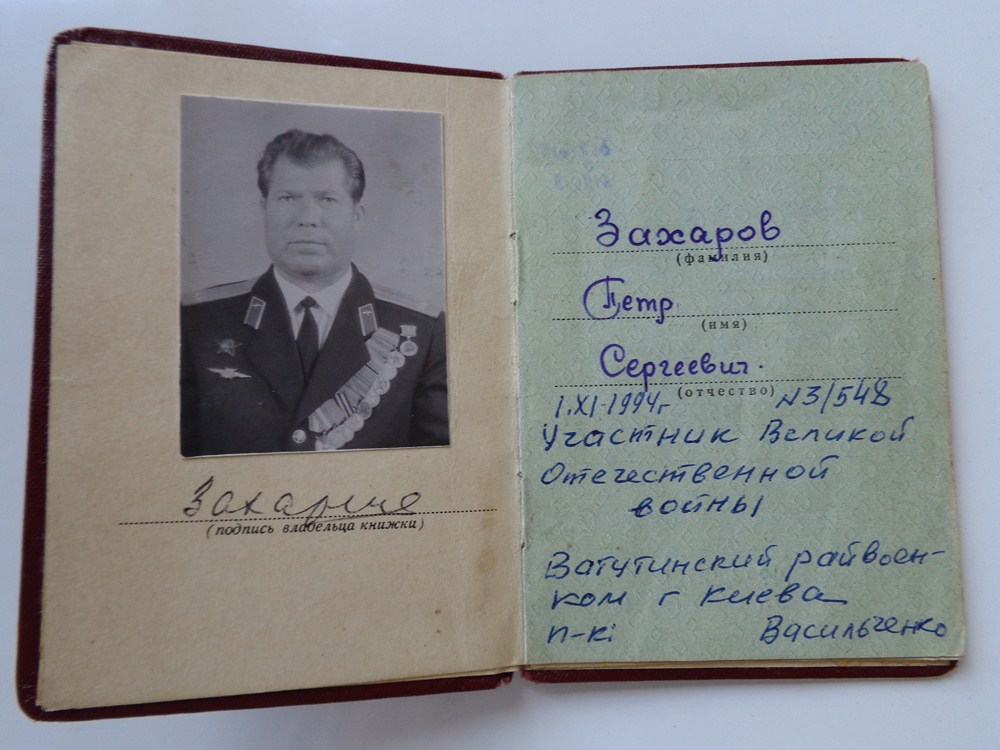 Захаров
(подпись владельца книжки)
Захаров
(фамилия)
Петр
(имя)
Сергеевич.
(отчество)
1.XI-1994г N3/548
Участник Великой
Отечественной
войны
Ватутинский райвоен-
ком г Киева
п-к: Васильченко